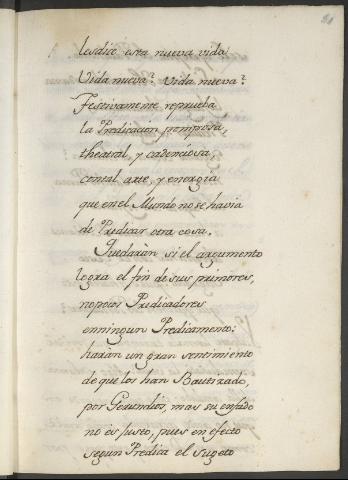 21
lesdice esta nueva vida!
Vida nueva? Vida nueva?
Festivamente reprueba,
la Predicacion pomposa,
theatral, y cadenciosa,
contal arte, y energia
que en el Mundo no se havia
de Predicar otra cosa.
Quedaràn si el argumento
logra el fin de sus primores,
nopocos Predicadores
enningun Predicamento:
haràn un gran sentimiento
de que los han Bautizado,
por Gerundios, mas su enfado
no es justo, pues en efecto
segun Predica el sugeto